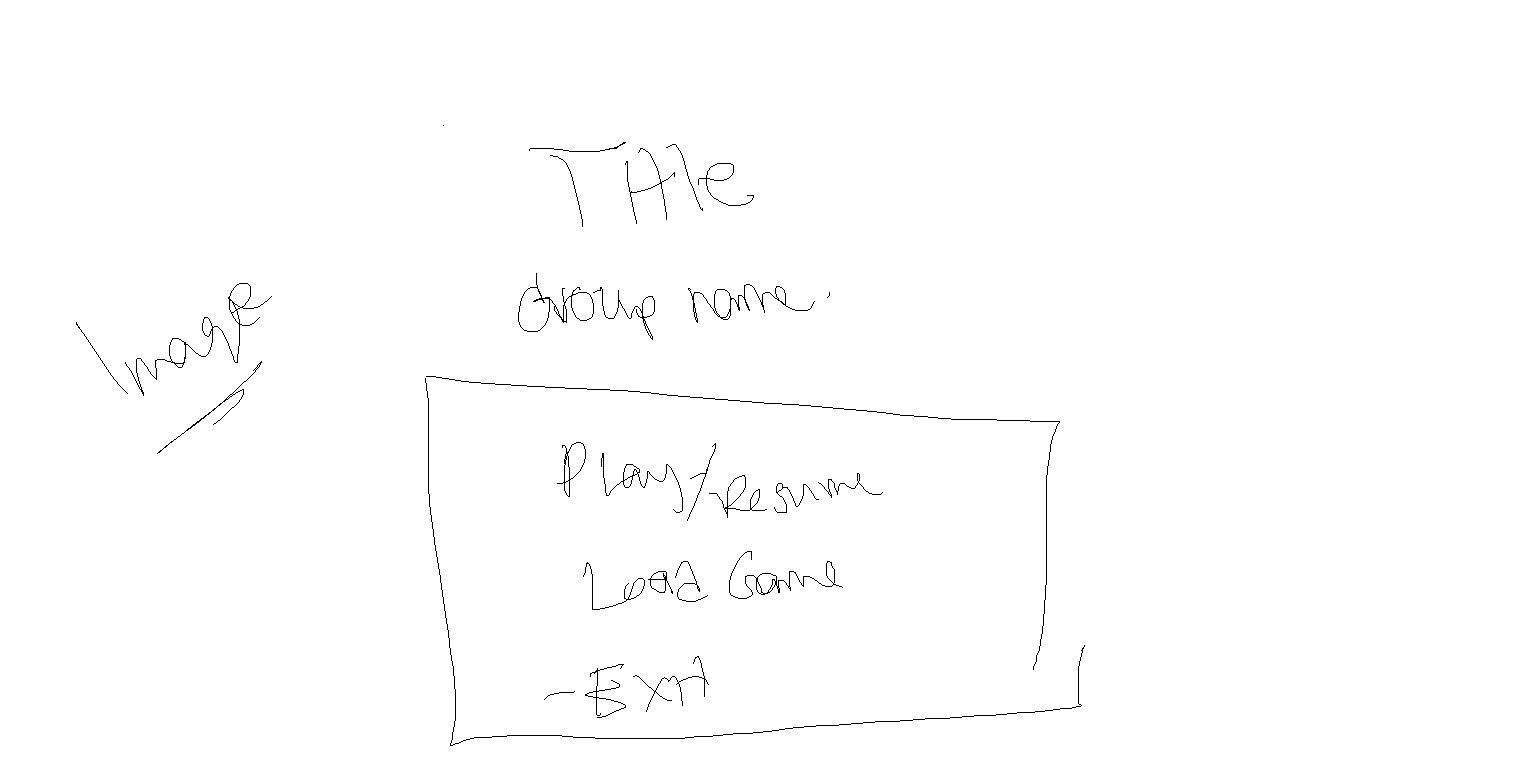 Title
Group name.
Image
Play/Resume
Load Game
- Exit